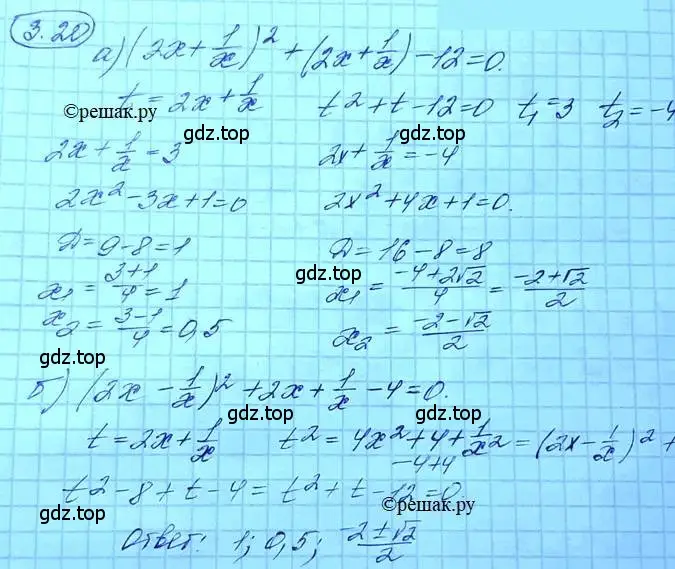 3.20
а) (2x + 1/x)² + (2x + 1/x) - 12 = 0.
t = 2x + 1/x   t² + t - 12 = 0   t₁ = 3   t₂ = -4
©решак.ру
gdz.top   gdz.top
2x + 1/x = 3   2x + 1/x = -4
2x² - 3x + 1 = 0   2x² + 4x + 1 = 0.
D = 9 - 8 = 1   D = 16 - 8 = 8
gdz.top
x₁ = (3+1)/4 = 1   x₁ = (-4+2√2)/4 = (-2+√2)/2
x₂ = (3-1)/4 = 0,5   x₂ = (-2-√2)/2
gdz.top
б) (2x - 1/x)² + 2x + 1/x - 4 = 0.
gdz.top   gdz.top
t = 2x + 1/x   t² = 4x² + 4 + 1/x² = (2x - 1/x)² +
-4+4
t² - 8 + t - 4 = t² + t - 12 = 0
©решак.ру
gdz.top
Ответ: 1; 0,5; (-2±√2)/2